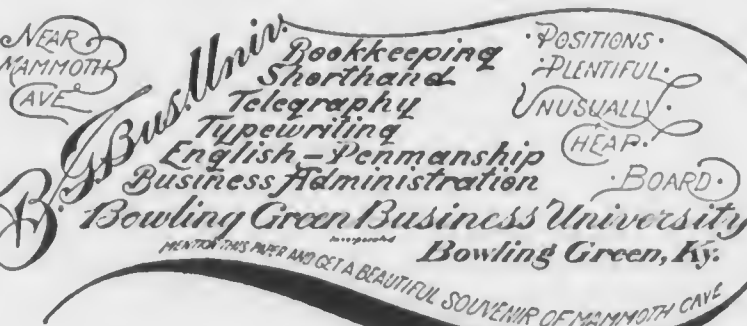 NEAR
MAMMOTH
CAVE
B. G. Bus. Univ.
Bookkeeping
Shorthand
Telegraphy
Typewriting
English - Penmanship
Business Administration
·POSITIONS·
·PLENTIFUL·
UNUSUALLY·
CHEAP·
·BOARD·
Bowling Green Business University
Incorporated
Bowling Green, Ky.
MENTION THIS PAPER AND GET A BEAUTIFUL SOUVENIR OF MAMMOTH CAVE